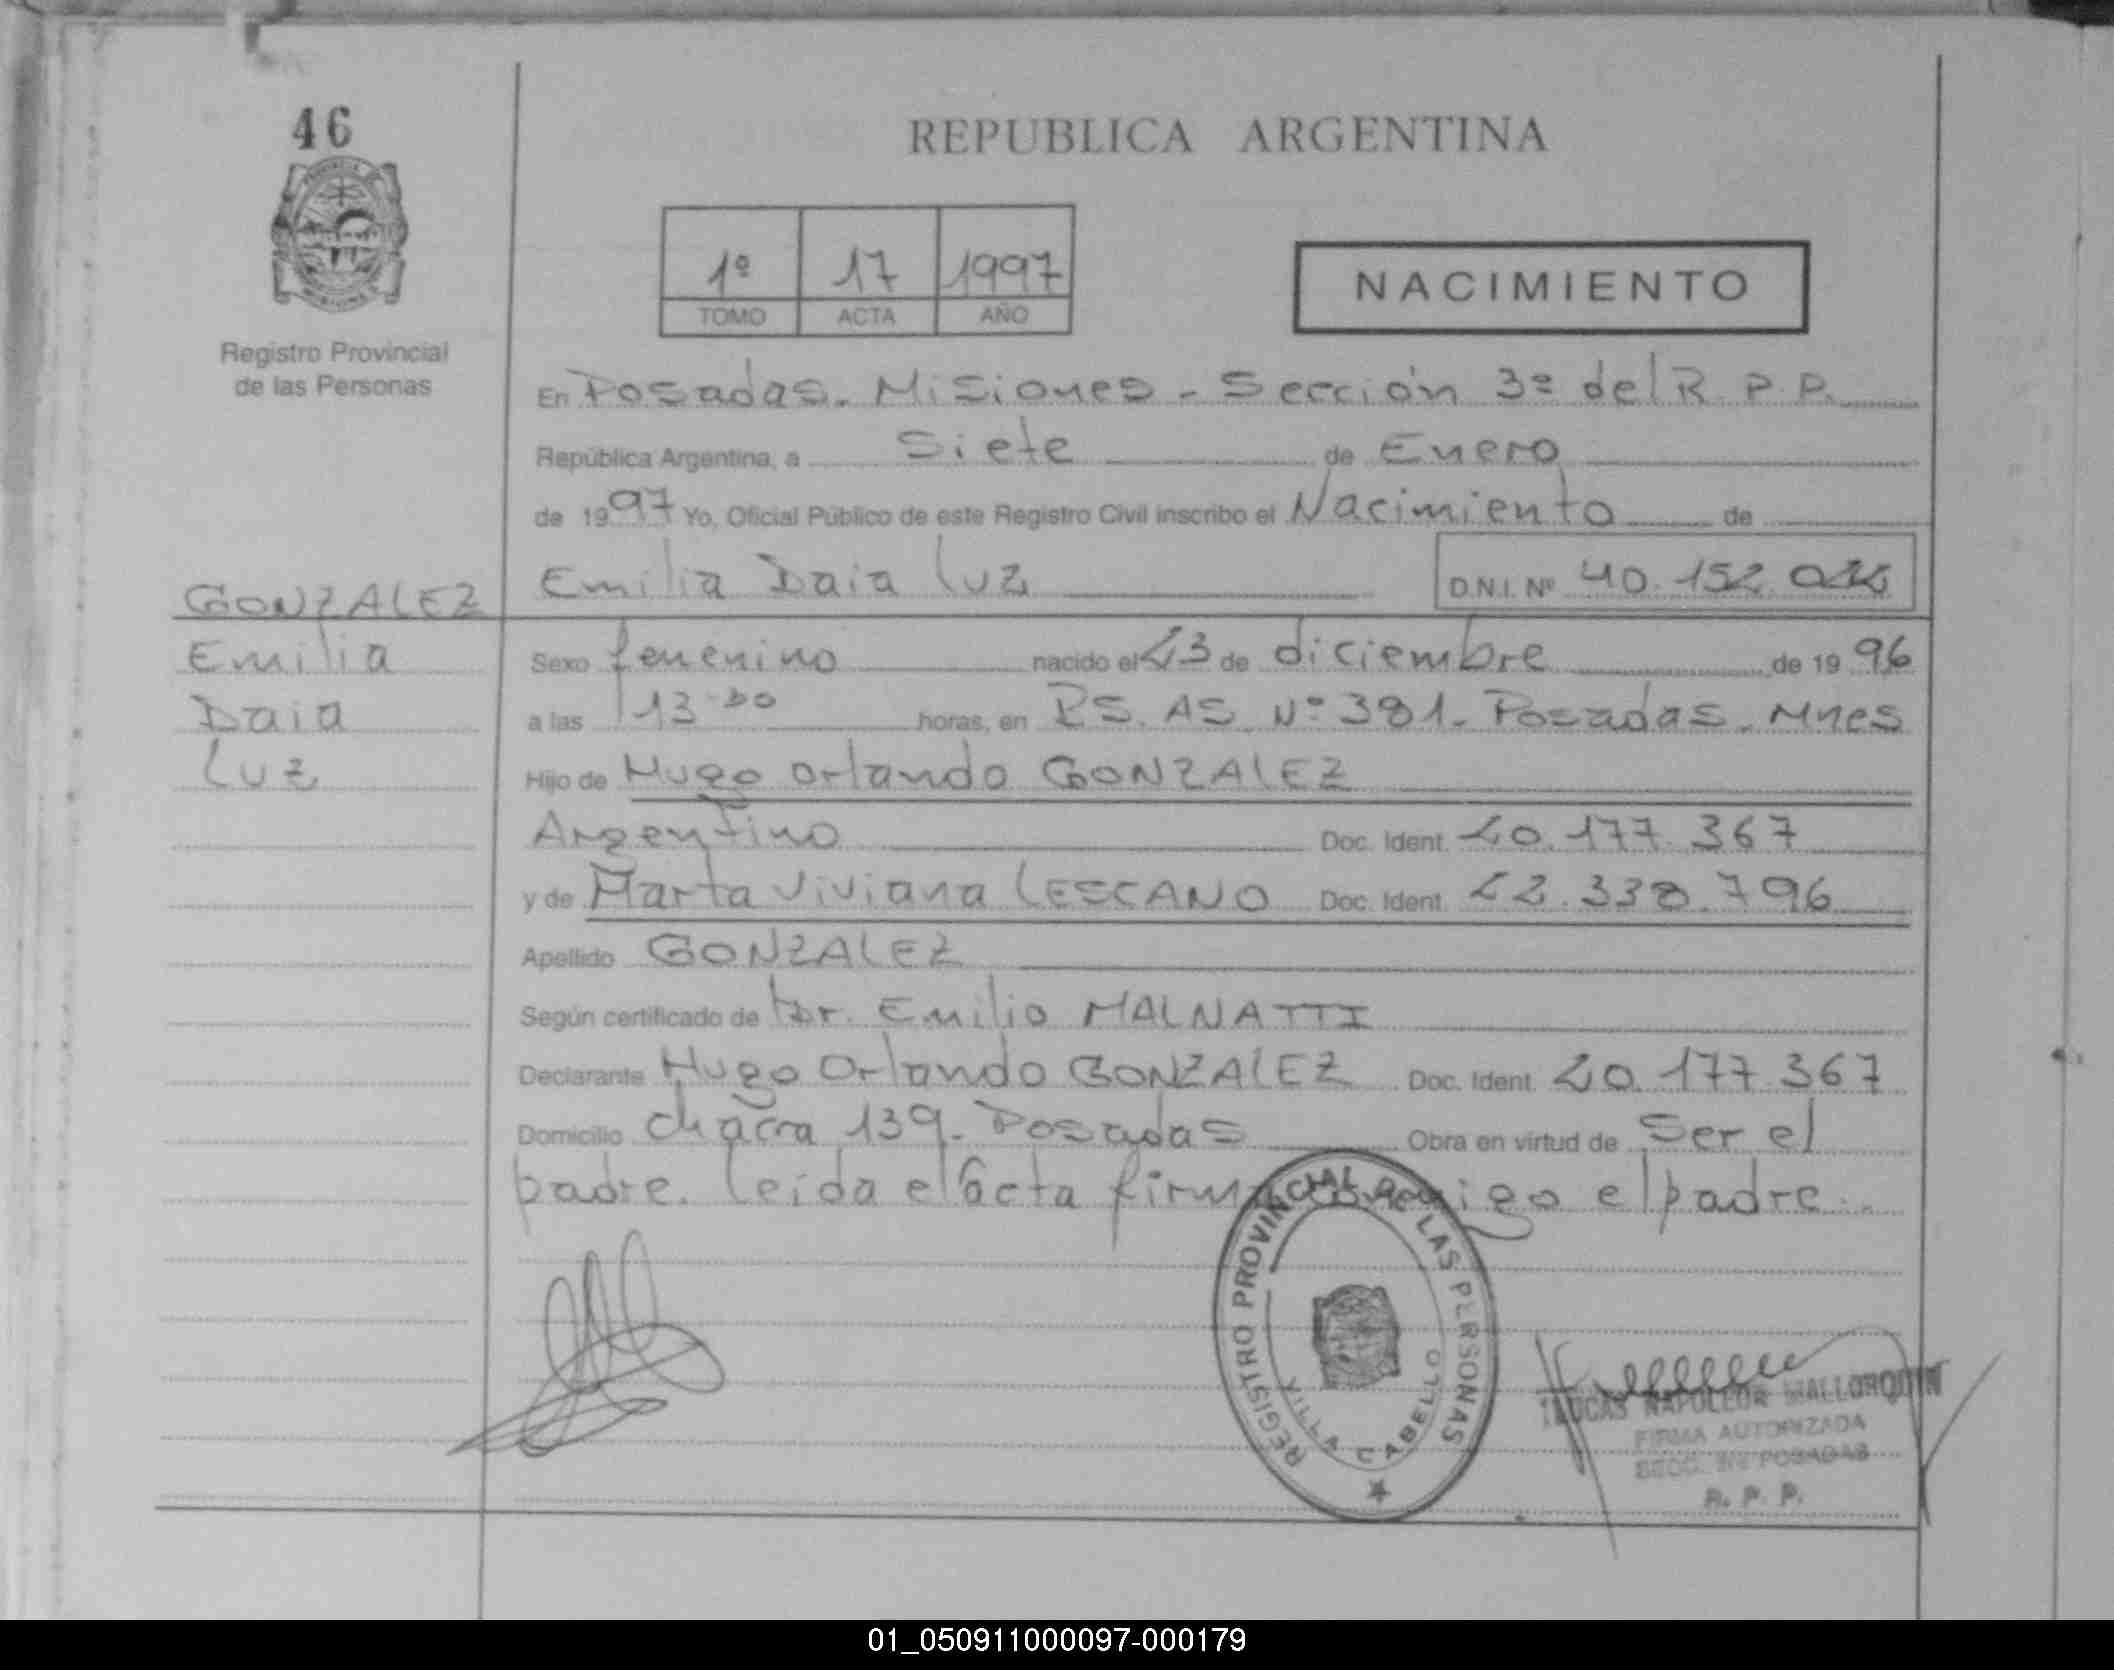 46
REPUBLICA ARGENTINA
1º 17 1997
TOMO ACTA AÑO
NACIMIENTO
Registro Provincial
de las Personas
En Posadas. Misiones - Sección 3º del R. P. P.
República Argentina, a Siete de Enero
de 1997 Yo, Oficial Público de este Registro Civil inscribo el Nacimiento de
GONZALEZ Emilia Daia Luz D.N.I. Nº 40.152.
Emilia Sexo femenino nacido el 23 de diciembre de 1996
Daia a las 13 horas, en BS. AS. Nº 381. Posadas. Mnes
Luz Hijo de Hugo Orlando GONZALEZ
Argentino Doc. Ident. 20.177.367
y de Marta Viviana LESCANO Doc. Ident. 22.338.796
Apellido GONZALEZ
Según certificado de Dr. Emilio MALNATTI
Declarante Hugo Orlando GONZALEZ Doc. Ident. 20.177.367
Domicilio Chacra 139. Posadas Obra en virtud de Ser el
padre. Leida el acta firma conmigo el padre.
REGISTRO PROVINCIAL DE LAS PERSONAS
VILLA CABELLO
LUCAS NAPOLEON MALLORQUIN
FIRMA AUTORIZADA
SECC. POSADAS
R. P. P.
01_050911000097-000179